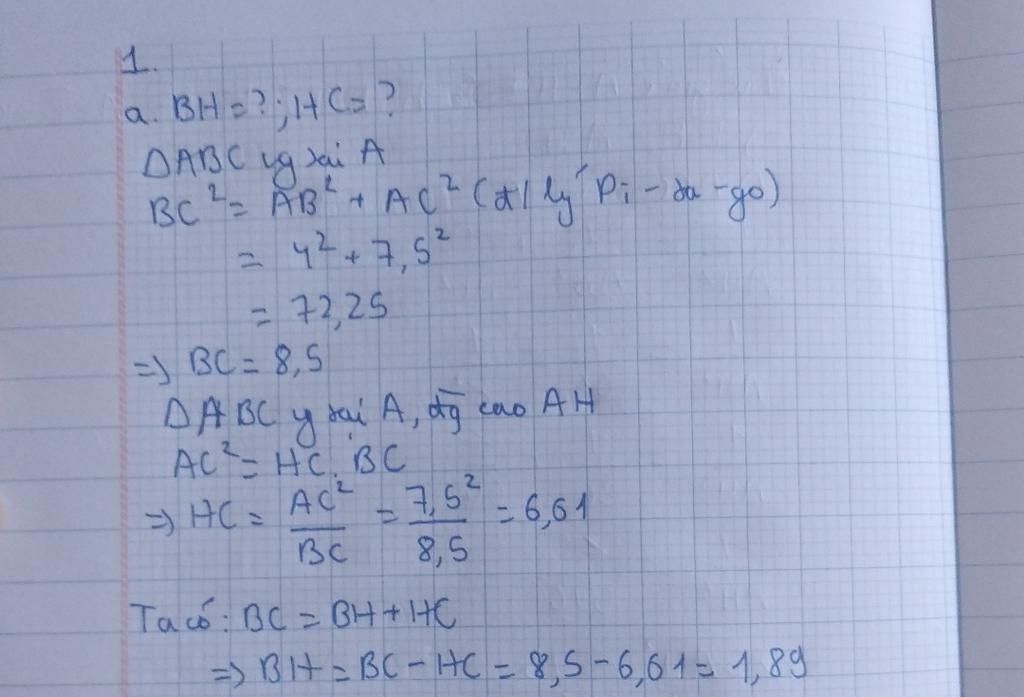 1.
a. BH = ?; HC = ?
ΔABC vg tại A
BC² = AB² + AC² (đ/lý Pi-ta-go)
= 4² + 7,5²
= 72,25
=> BC = 8,5
ΔABC vg tại A, đg cao AH
AC² = HC. BC
=> HC = AC²/BC = 7,5²/8,5 = 6,61
Ta có: BC = BH + HC
=> BH = BC - HC = 8,5 - 6,61 = 1,89